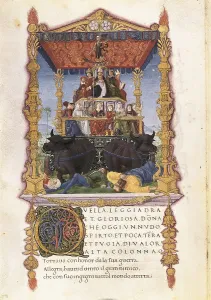 QVELLA LEGGIADRA
ET GLORIOSA DONNA
CHE OGGI VN NVDO
SPIRTO ET POCA TERRA
ET FV GIA DI VALOR
ALTA COLONNA
Tornaua con honor dalla sua guerra
Allegra, hauendo uinto il gran nemico,
che con suo ingegni tutto il mondo atterra.